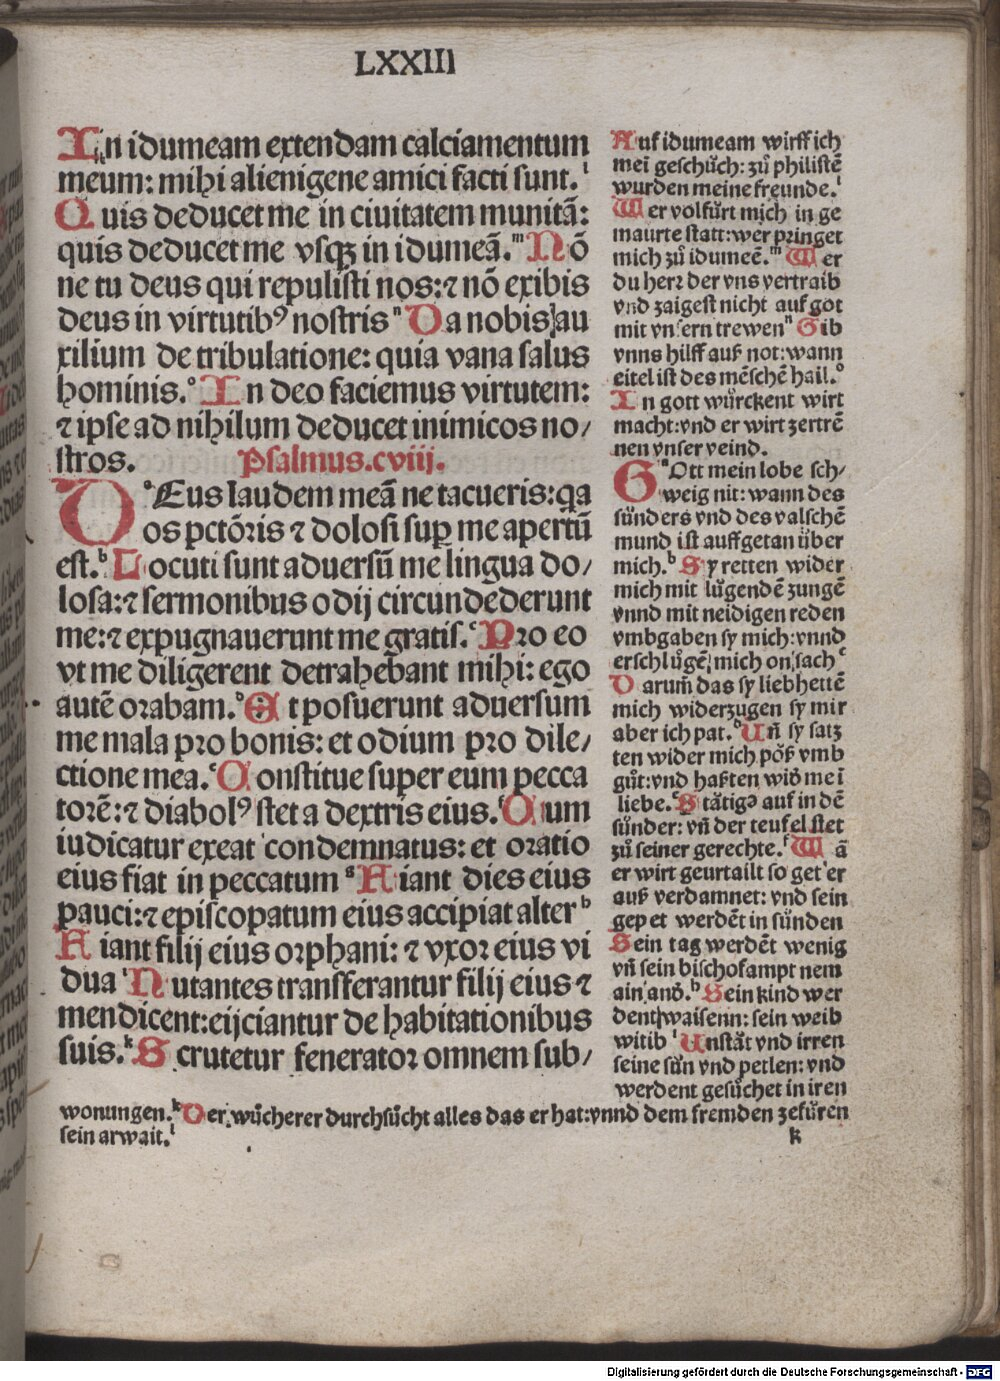 LXXIII
In idumeam extendam calciamentum
meum: mihi alienigene amici facti sunt.l
Quis deducet me in ciuitatem munitā:
quis deducet me vsqꝫ in idumeā.m Nō
ne tu deus qui repulisti nos:⁊ nō exibis
deus in virtutibꝰ nostrisn Da nobis au
xilium de tribulatione: quia vana salus
hominis.o In deo faciemus virtutem:
⁊ ipse ad nihilum deducet inimicos no/
stros. Psalmus.cviij.
DaEus laudem meā ne tacueris:qꝛa
os pctōris ⁊ dolosi suꝑ me apertū
est.b Locuti sunt aduersū me lingua do/
losa:⁊ sermonibus odij circundederunt
me:⁊ expugnauerunt me gratis.c Pro eo
vt me diligerent detrahebant mihi: ego
autē orabam.d Et posuerunt aduersum
me mala pro bonis: et odium pro dile/
ctione mea.e Constitue super eum pecca
torē:⁊ diabolꝰ stet a dextris eius.f Cum
iudicatur exeat condemnatus: et oratio
eius fiat in peccatum g Fiant dies eius
pauci:⁊ episcopatum eius accipiat alter h
Fiant filij eius orphani: ⁊ vxor eius vi
dua i Nutantes transferantur filij eius ⁊
mendicent:eijciantur de habitationibus
suis.k Scrutetur fenerator omnem sub/
Auf idumeam wirff ich
mei̅ geschůch: zů philistē
wurden meine freunde.l
Wer volfůrt mich in ge
maurte statt:wer pringet
mich zů idumeē.m Wer
du herr der vns vertraib
vnd zaigest nicht auf got
mit vnsern trewenn Gib
vnns hilff auß not:wann
eitel ist des mēschē hail.o
In gott würckent wirt
macht:vnd er wirt zertrē
nen vnser veind.
GaOtt mein lobe sch/
weig nit: wann des
sünders vnd des valschē
mund ist auffgetan über
mich.b Sy retten wider
mich mit lůgendē zungē
vnnd mit neidigen reden
vmbgaben sy mich:vnnd
erschlůgē mich on sachc
Darum̅ das sy liebhettē
mich widerzugen sy mir
aber ich pat.d Un̅ sy satz
ten wider mich pőß vmb
gůt:vnd haßten wid̛ mei̅
liebe.e Stätige auf in dē
sünder: vn̅ der teufel stet
zů seiner gerechte.f Wā
er wirt geurtailt so get er
auß verdamnet: vnd sein
gepet werdēt in sünden
Sein tag werdēt wenig
vn̅ sein bischofampt nem
ain and̛.h Sein kind wer
dent waisenn: sein weib
witib i Unstät vnd irren
seine sün vnd petlen: vnd
werdent gesůchet in iren
wonungen.k Der wůcherer durchsůcht alles das er hat:vnnd dem fremden zefüren
sein arwait.l
k
Digitalisierung gefördert durch die Deutsche Forschungsgemeinschaft - DFG